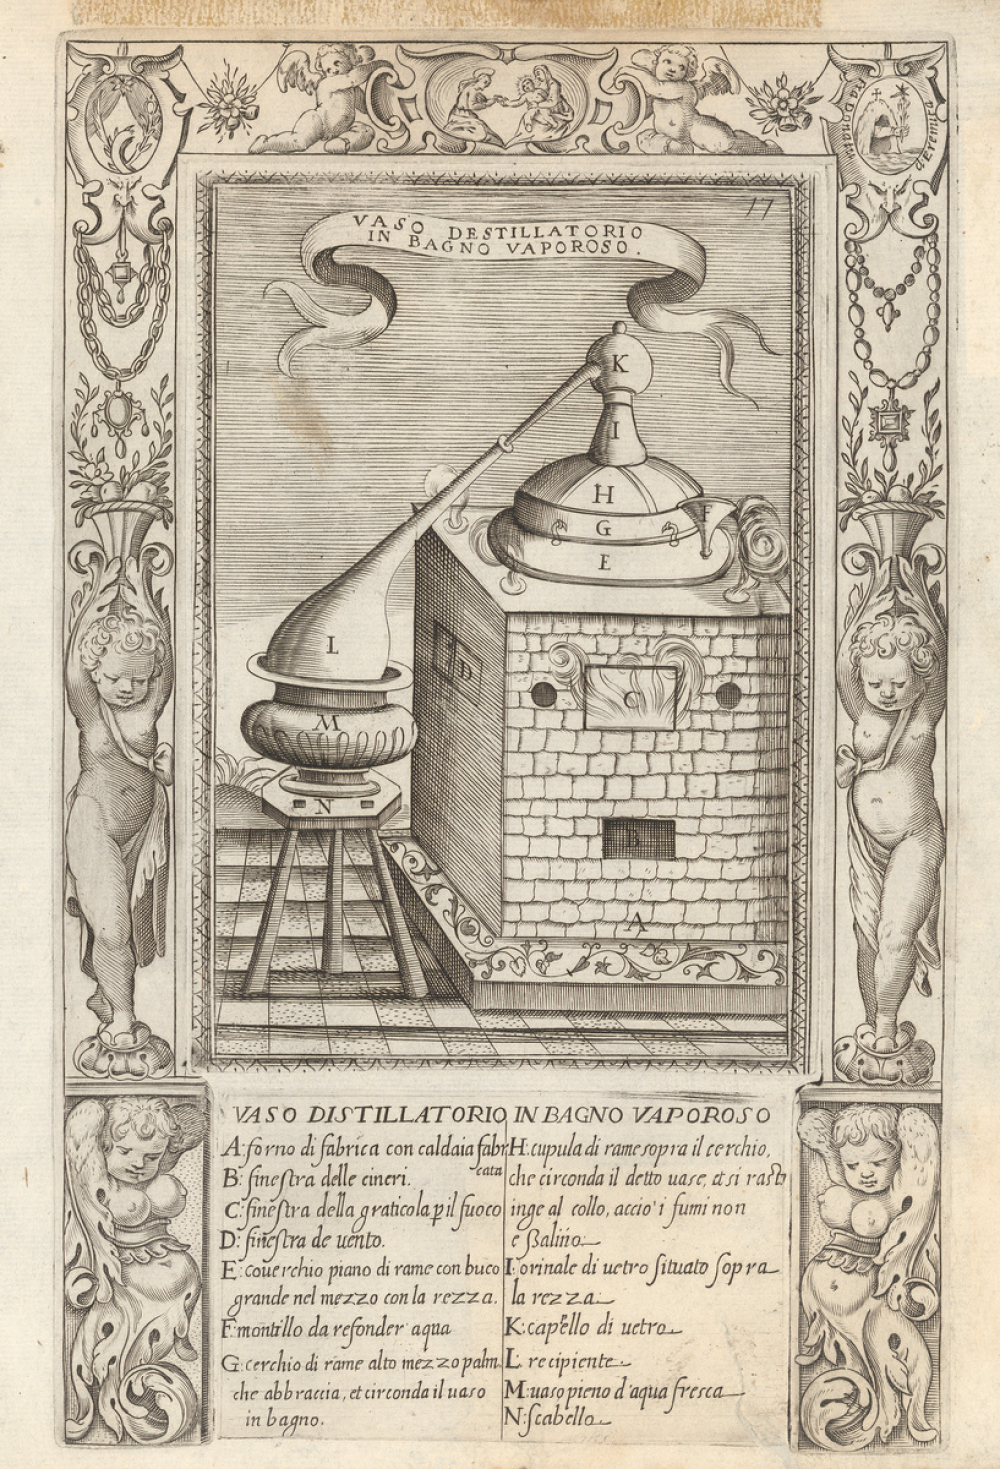 17
VASO DESTILLATORIO
IN BAGNO VAPOROSO.
K
I
H
F
G
E
L
D
C
M
N
B
A
VASO DISTILLATORIO IN BAGNO VAPOROSO
A: forno di fabrica con caldaia fabr
cata
B: finestra delle cineri.
C: finestra della graticola p il fuoco
D: finestra de uento.
E: couerchio piano di rame con buco
grande nel mezzo con la rezza.
F: da refonder aqua
G: cerchio di rame alto mezzo palm.
che abbraccia, et circonda il uaso
in bagno.
H: cupula di rame sopra il cerchio,
che circonda il detto uase, et si rast
inge al collo, accio' i fumi non
I: orinale di uetro situato sopra
la rezza
K: capello di uetro
L: recipiente
M: uaso pieno d'aqua fresca
N: scabello